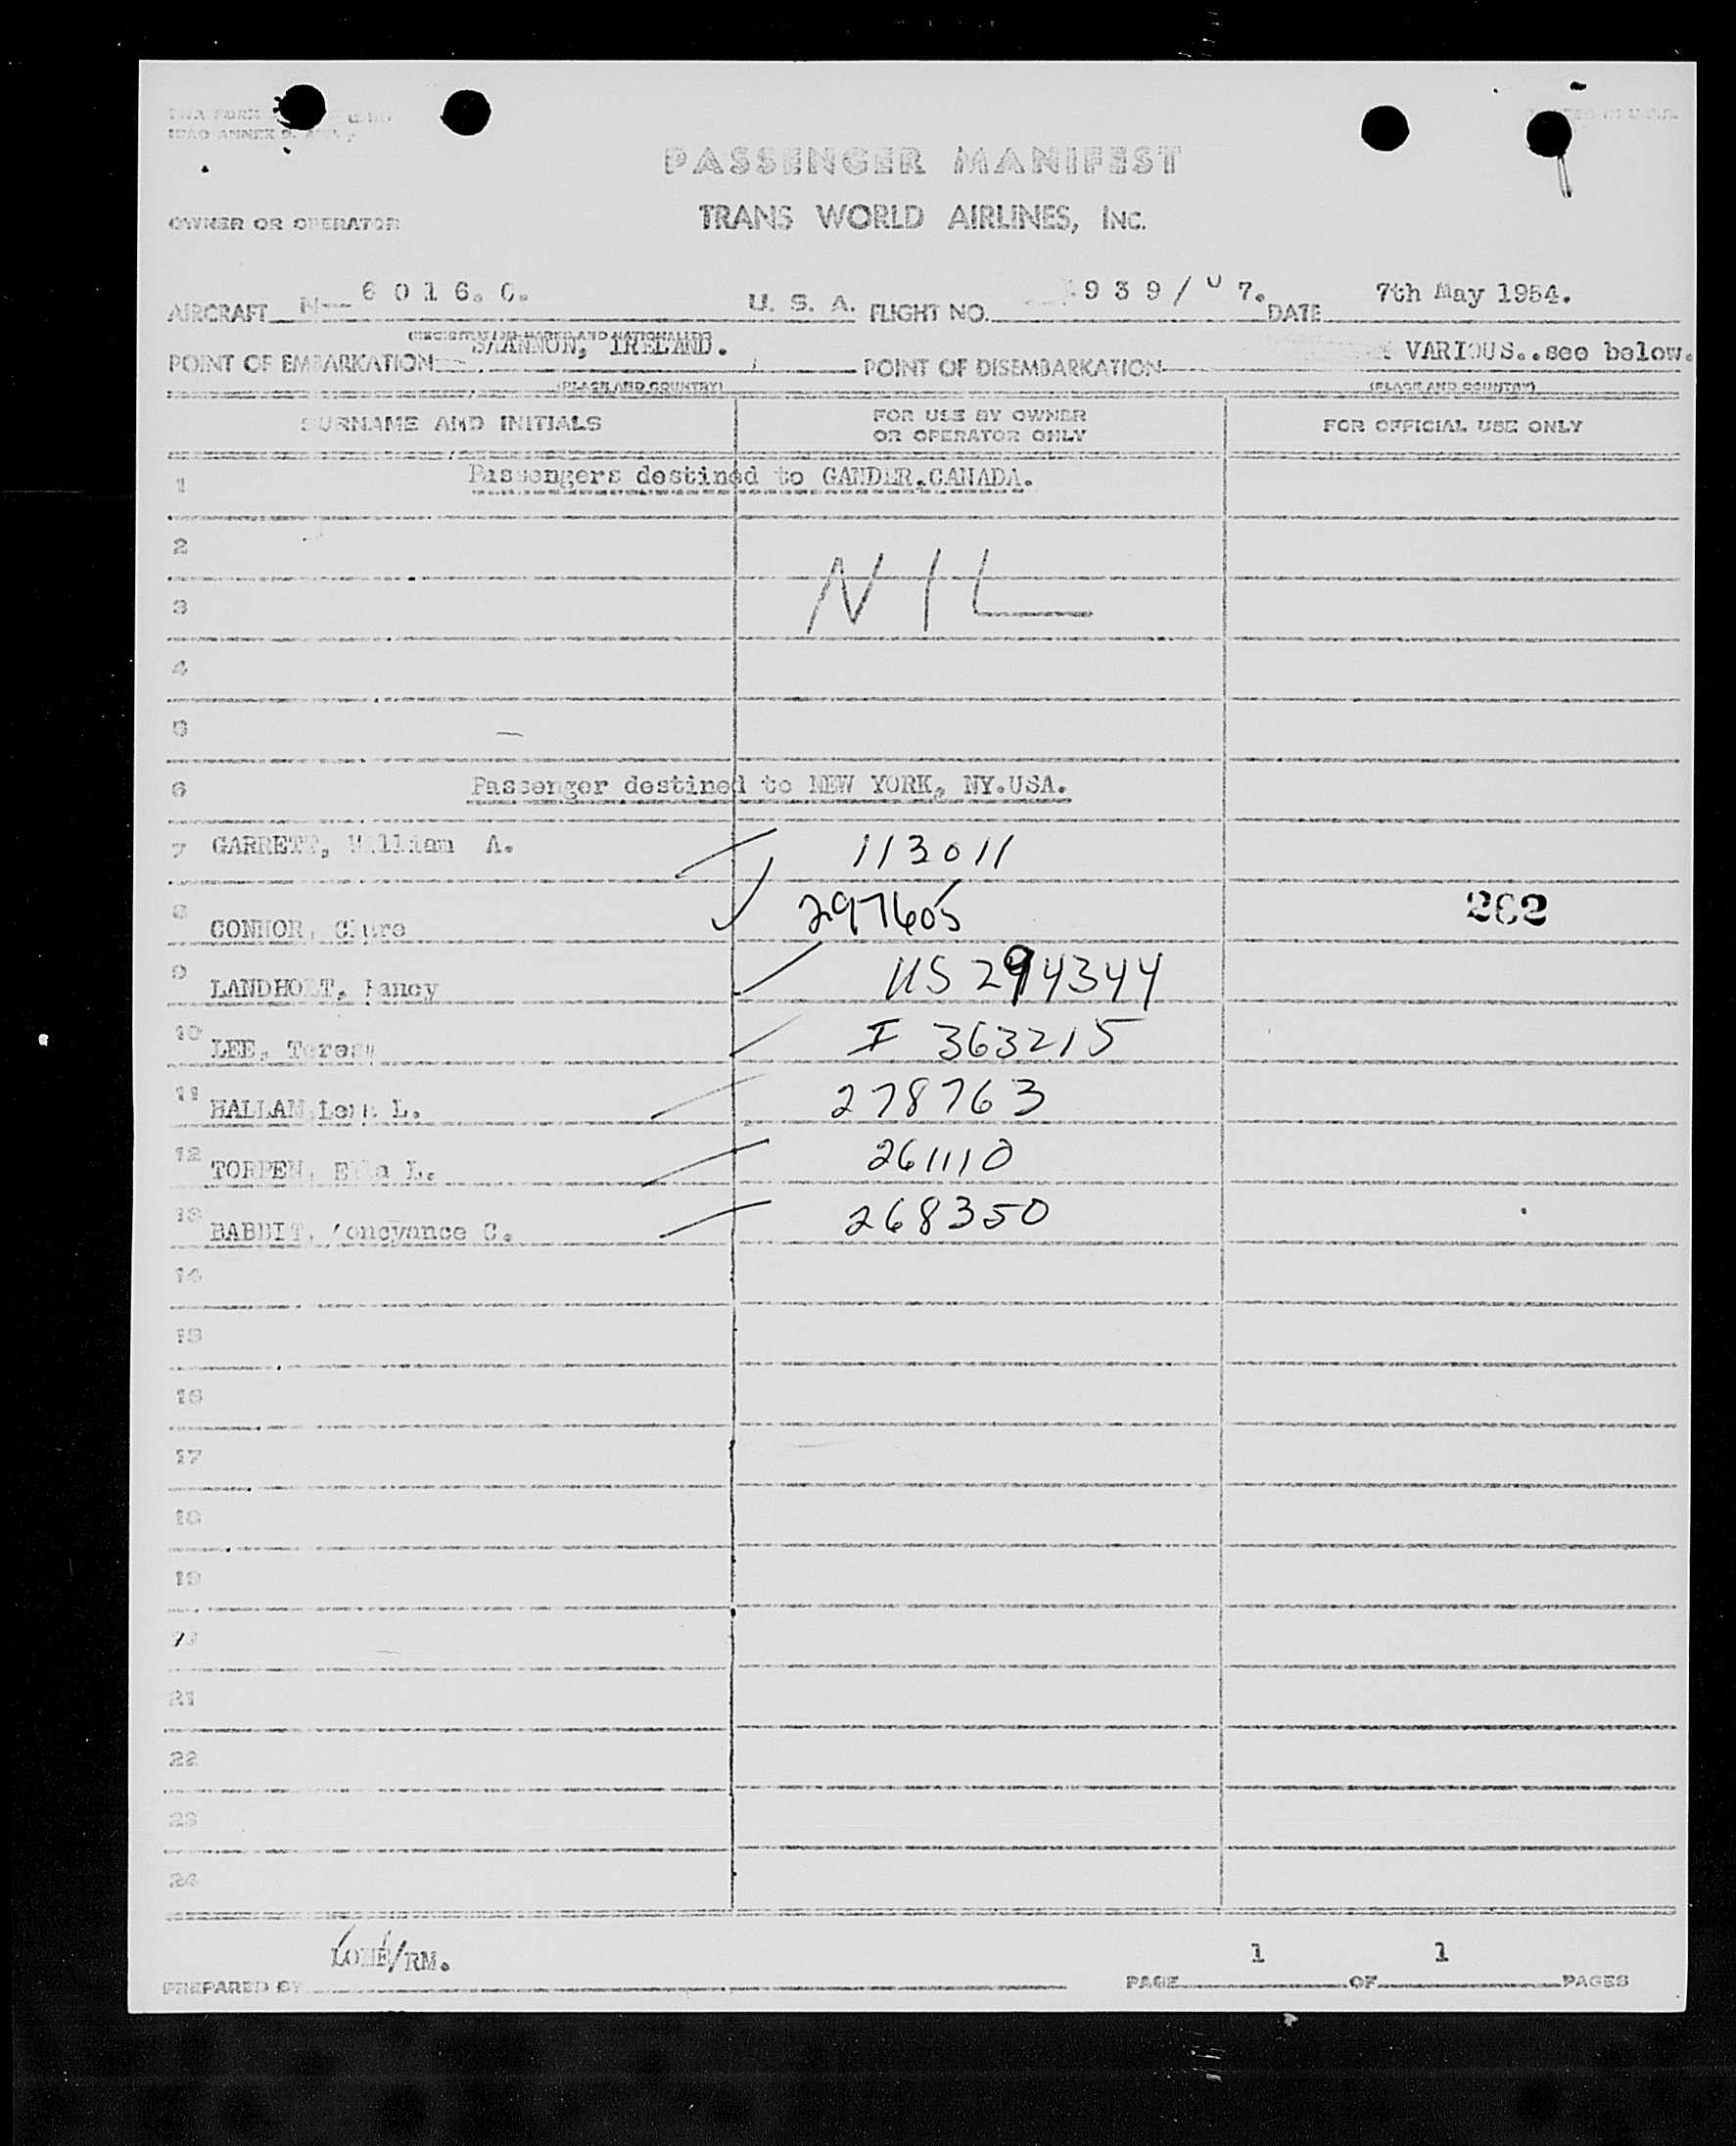 TWA FORM
ICAO ANNEX 9
PASSENGER MANIFEST
OWNER OR OPERATOR TRANS WORLD AIRLINES, INC.
AIRCRAFT N-- 6 0 1 6. C. U. S. A. FLIGHT NO. 9 3 9 / 7. DATE 7th May 1954.
(REGISTRATION MARKS AND NATIONALITY)
POINT OF EMBARKATION SHANNON, IRELAND. POINT OF DISEMBARKATION VARIOUS..see below.
(PLACE AND COUNTRY) (PLACE AND COUNTRY)
SURNAME AND INITIALS FOR USE BY OWNER OR OPERATOR ONLY FOR OFFICIAL USE ONLY
1 Passengers destined to GANDER.CANADA.
2
3 NIL
4
5
6 Passenger destined to NEW YORK, NY.USA.
7 GARRETT, William A. 113011
8 CONNOR, 297605 262
9 LANDHOLT, Nancy US 294344
10 LEE, Teresa I 363215
11 HALLAM, L. 278763
12 TORPEN, L. 261110
13 BABBIT, C. 268350
14
15
16
17
18
19
20
21
22
23
24
PREPARED BY /RM. PAGE 1 OF 1 PAGES